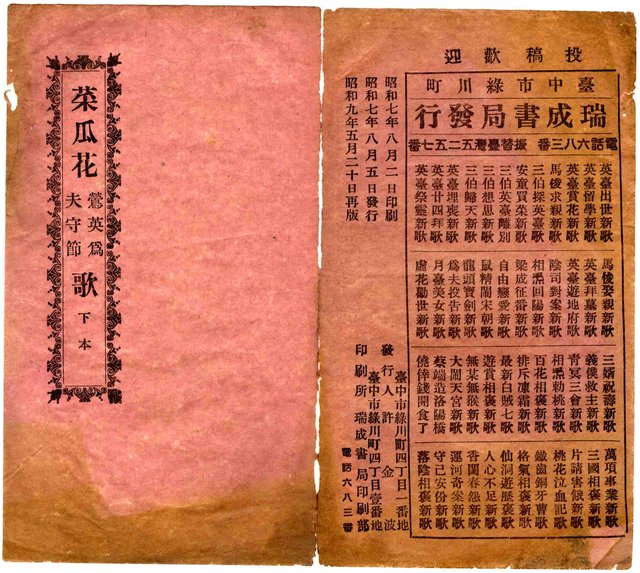 菜瓜花
鶯英為
夫守節
歌
下本
投稿歡迎
臺中市綠川町
瑞成書局發行
電話六八三番 振替臺灣五二五七番
英臺出世新歌
英臺留學新歌
英臺賞花新歌
馬俊求親新歌
三伯探英臺歌
安童買菜新歌
三伯英臺離別
三伯想思新歌
三伯歸天新歌
英臺埋喪新歌
英臺廿四拜歌
英臺祭靈新歌
馬俊娶親新歌
英臺拜墓新歌
英臺遊地府歌
陰司對案新歌
相𤆬回陽新歌
梁成征番新歌
自由戀愛新歌
鼠精鬧宋朝歌
龍頭寶劍新歌
為夫投告新歌
月臺美女新歌
盧花勸世新歌
三婿祝壽新歌
義僕救主新歌
青冥三會新歌
相𤆬勅桃新歌
百花相褒新歌
排斥凍霜新歌
最新白賊七歌
遊賞相褒新歌
無某無猴新歌
大鬧天宮新歌
蔡端造洛陽橋
僥倖錢開食了
萬項事業新歌
三國相褒新歌
片請害俄新歌
桃花泣血記歌
鐵齒銅牙曹歌
格氣相褒新歌
仙洞遊歷褒歌
人心不足新歌
香閨春怨新歌
運河奇案新歌
守己安份新歌
落陰相褒新歌
昭和七年八月二日印刷
昭和七年八月五日發行
昭和九年五月二十日再版
臺中市綠川町四丁目一番地
發行人 許金波
臺中市綠川町四丁目壹番地
印刷所 瑞成書局印刷部
電話六八三番